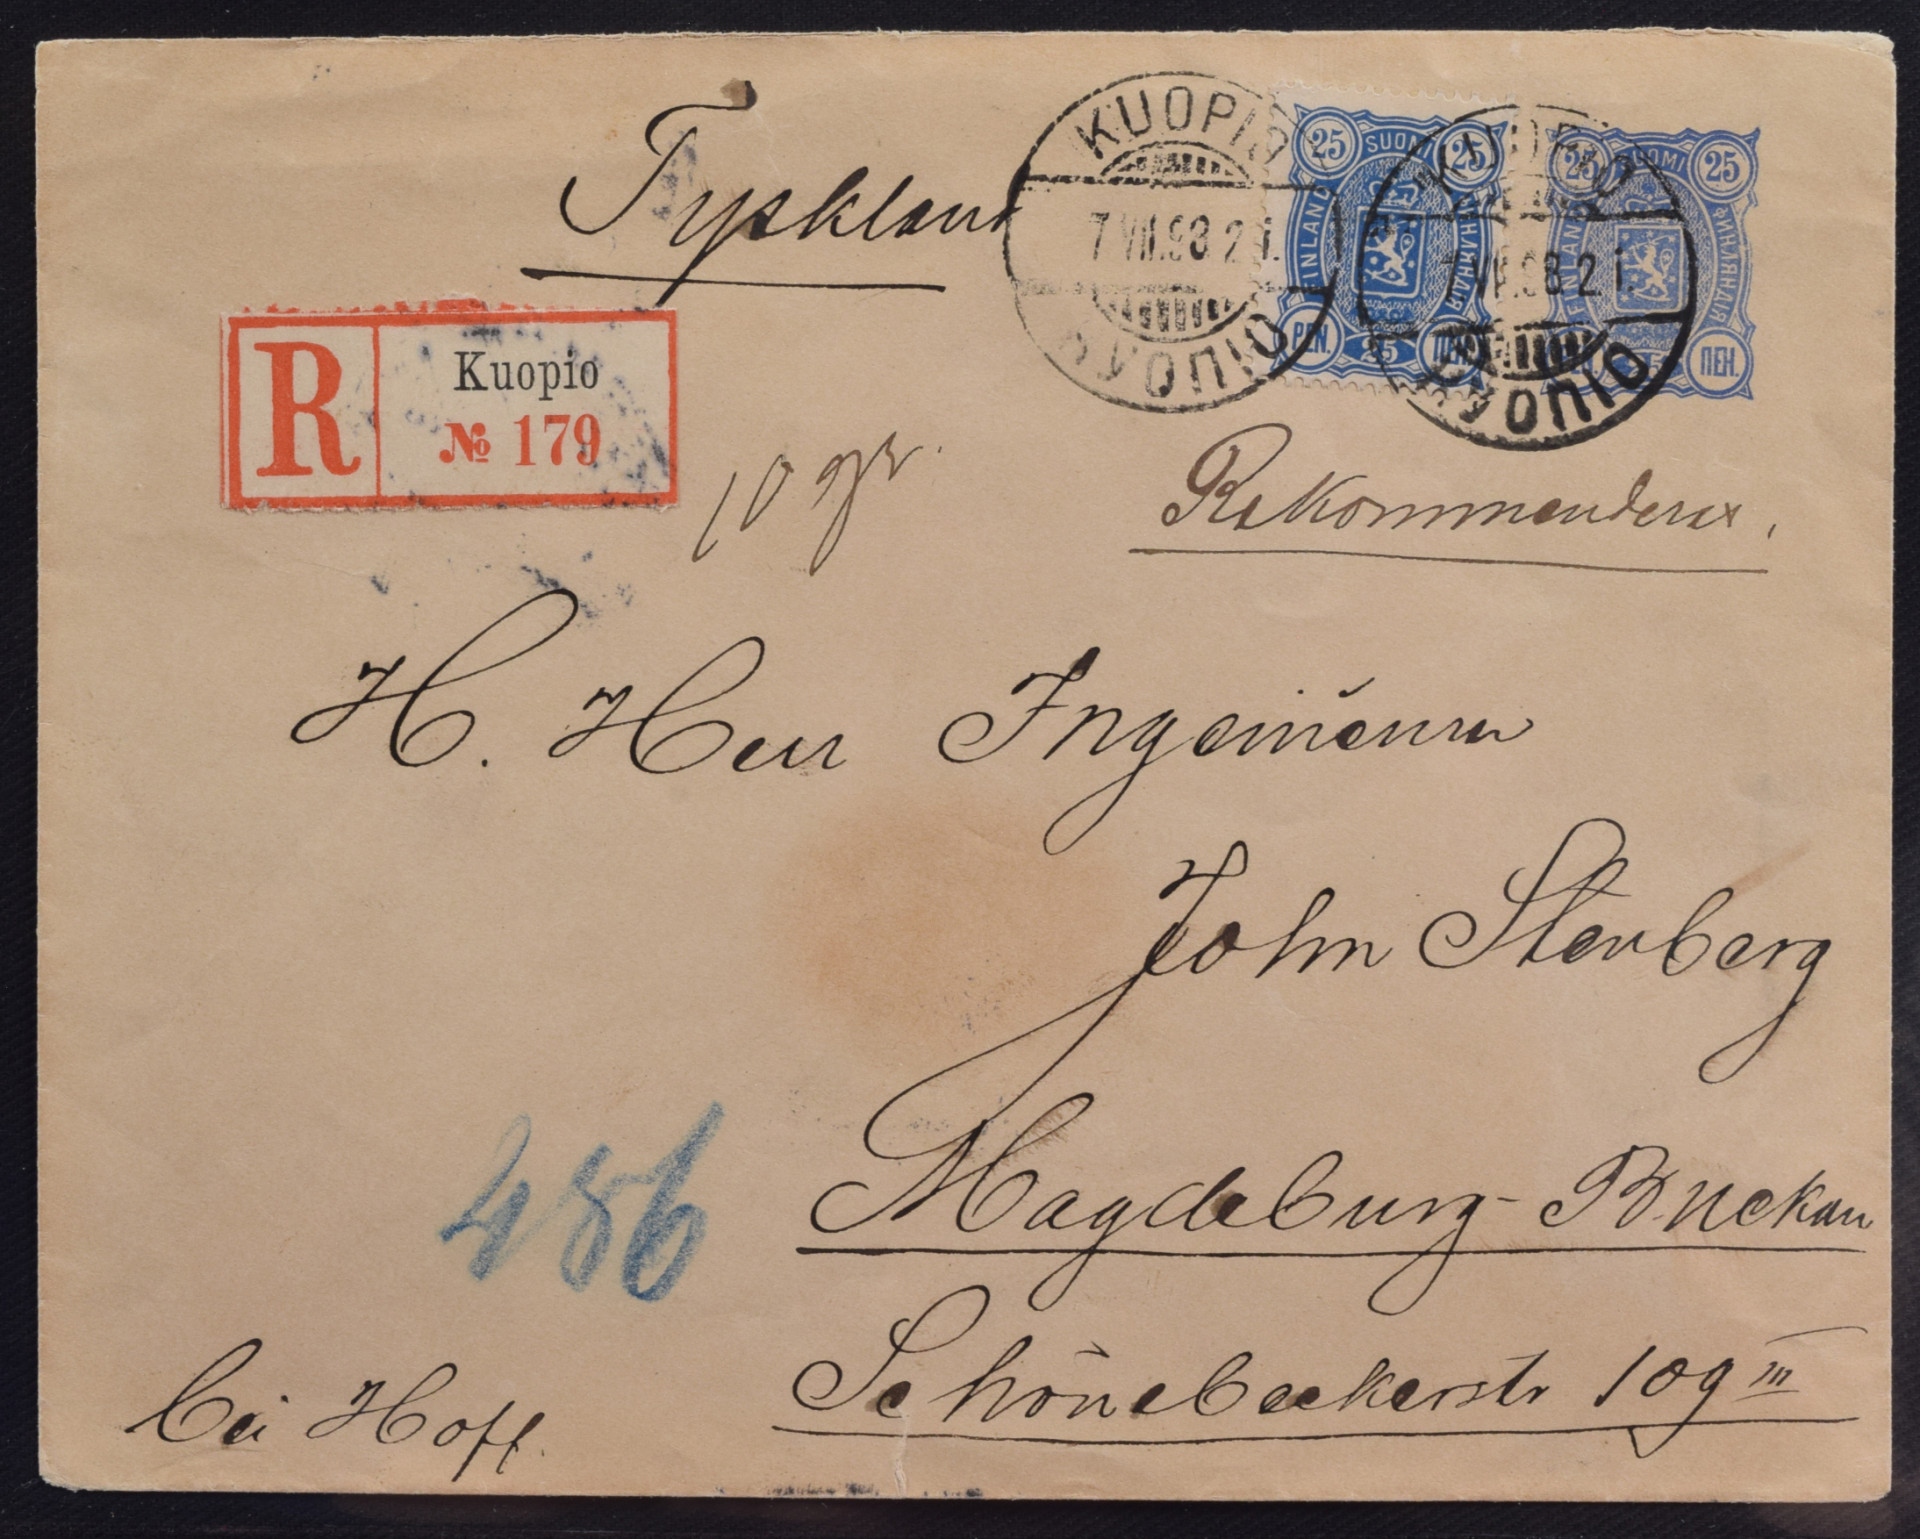 Tyskland
KUOPIO
7.VII.98.2 i.
КУОПІО
25 SUOMI 25
FINLAND
ФИНЛЯНДІЯ
PEN. 25 ПЕН.
KUOPIO
7.VII.98.2 i.
КУОПІО
25 SUOMI 25
FINLAND
ФИНЛЯНДІЯ
25 ПЕН.
R Kuopio
№ 179
10 gr.
Rekommenderas.
H. Herr Ingenieuren
John Stenberg
Magdeburg-Buckau
Schönebeckerstr 109 III
486
bei Hoff.